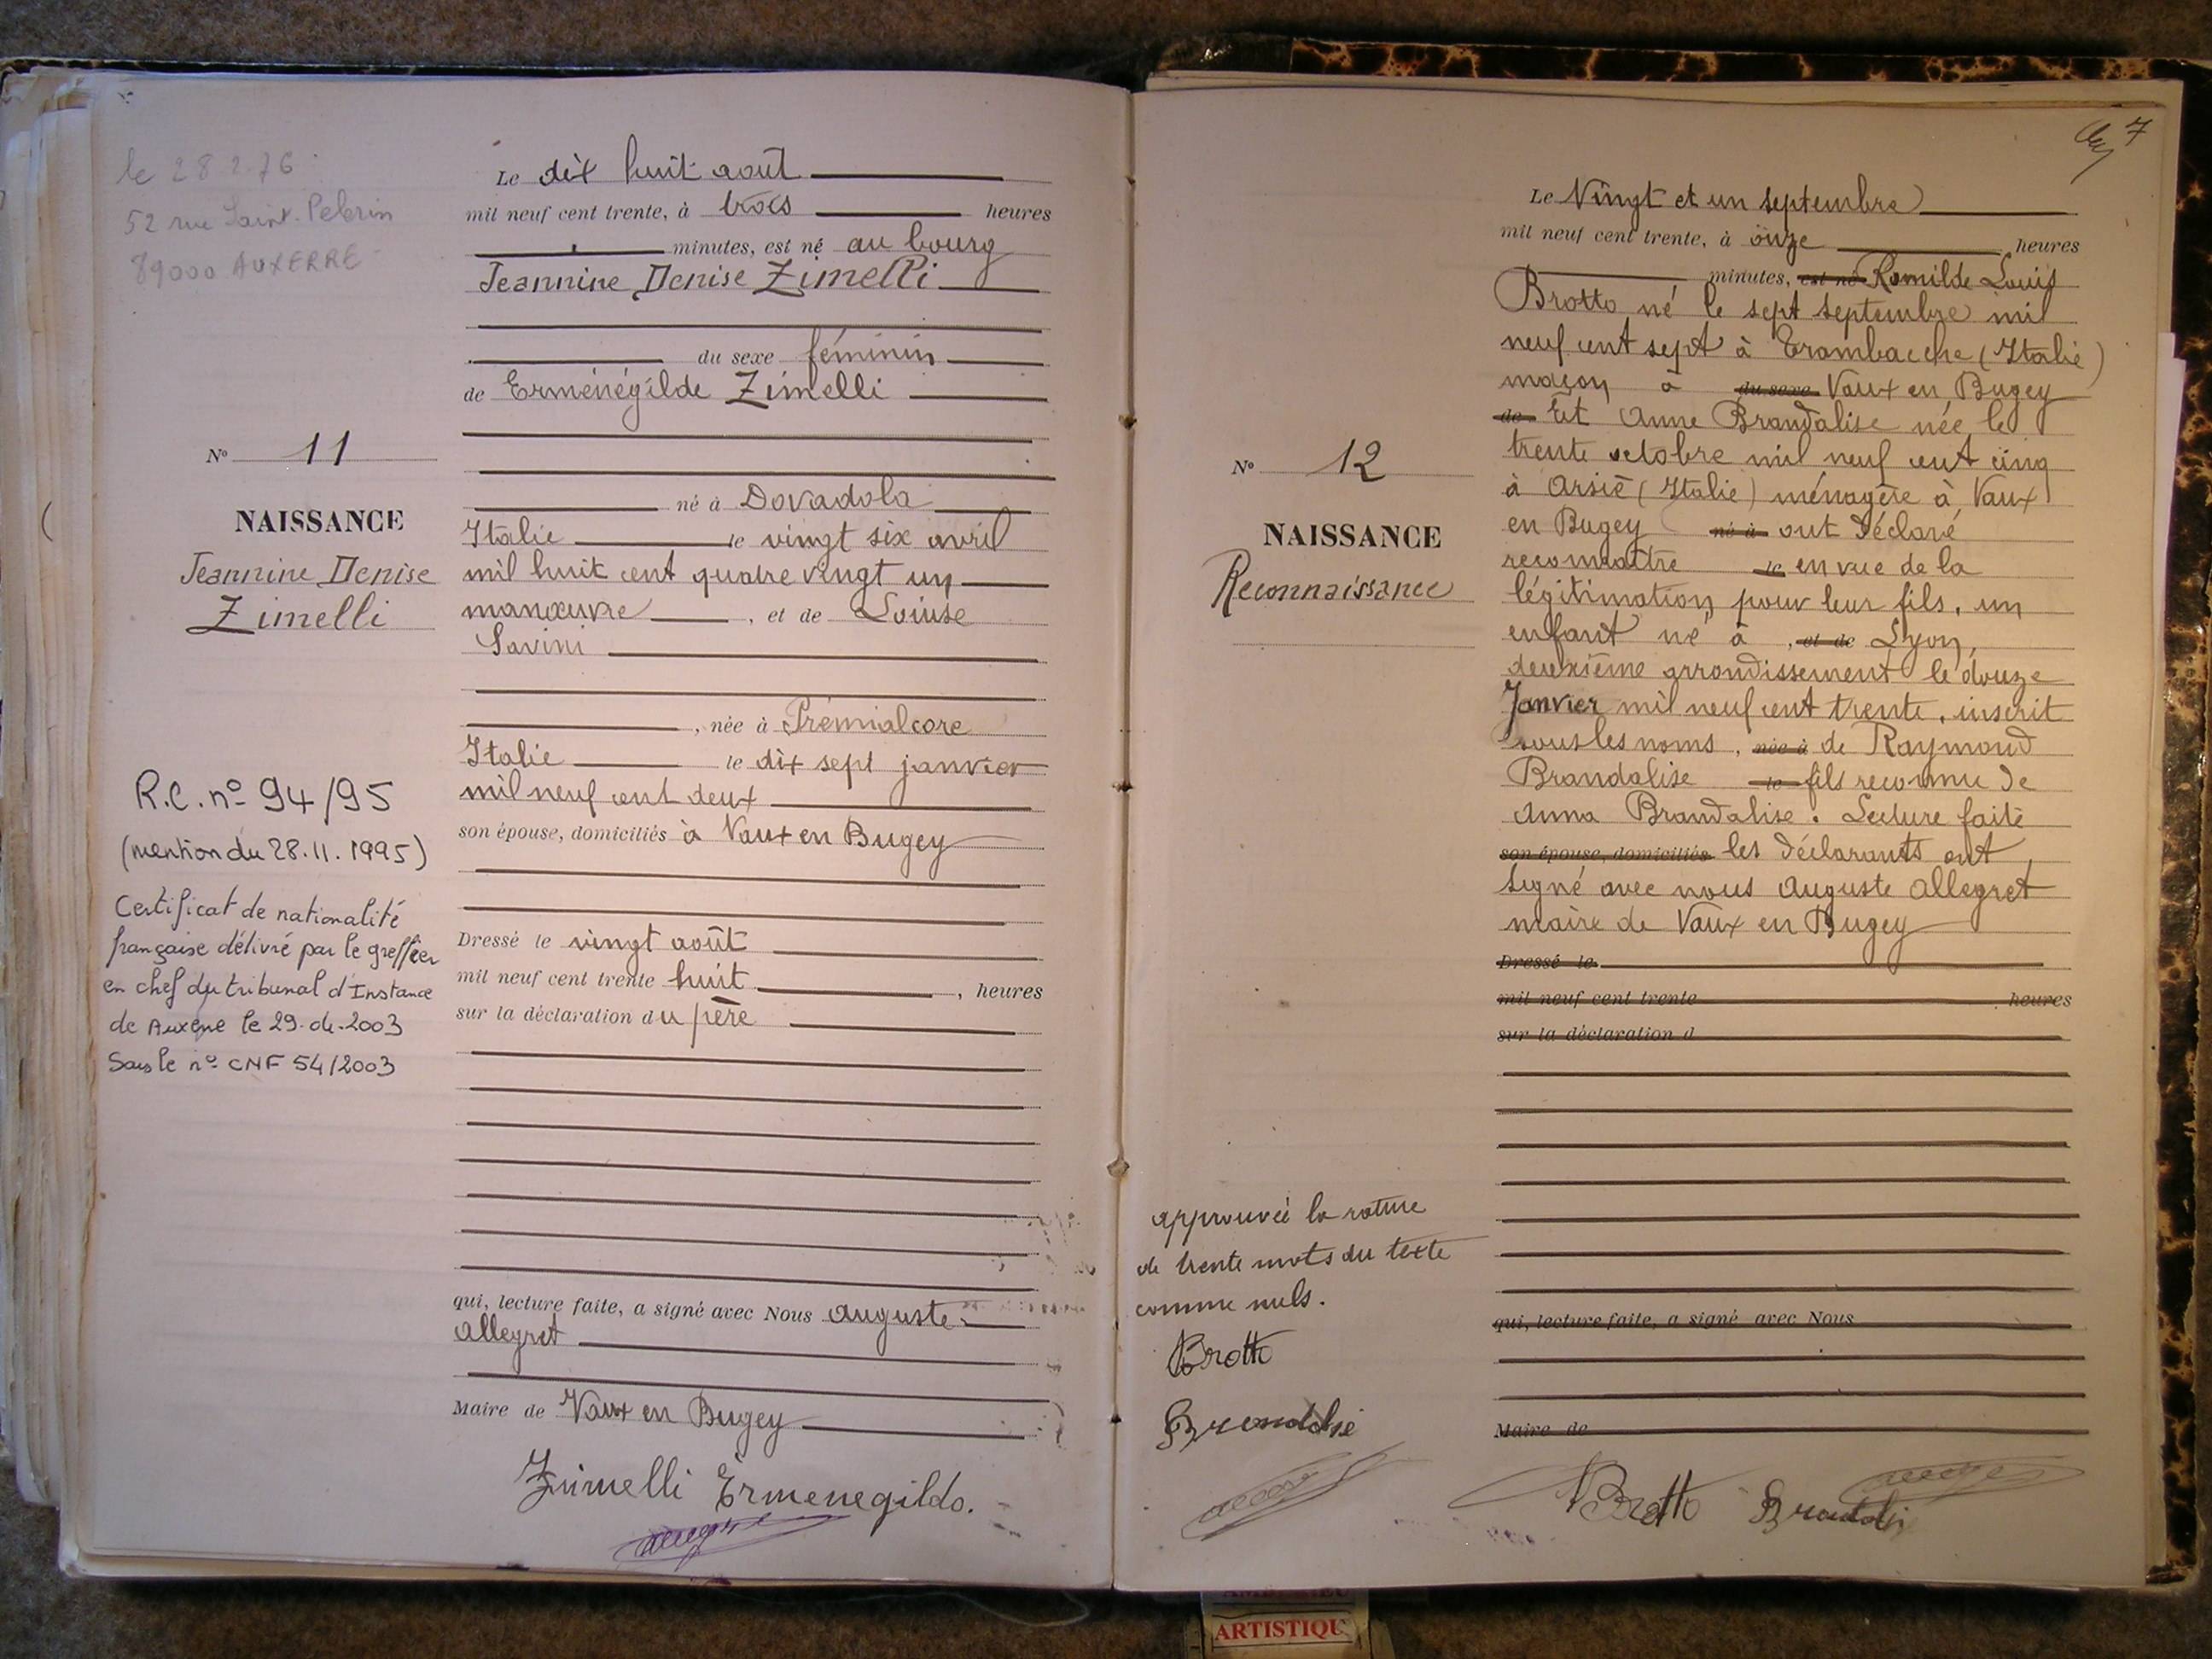 le 28.2.76
52 rue Saint-Pelerin
89000 AUXERRE
Nº 11
NAISSANCE
Jeannine Denise
Zimelli
R.C. nº 94/95
(mention du 28.11.1995)
Certificat de nationalité
française délivré par le greffier
en chef du tribunal d'Instance
de Auxerre le 29.04.2003
Sous le nº CNF 54/2003
Le dix huit août
mil neuf cent trente, à trois heures
minutes, est né au bourg
Jeannine Denise Zimelli
du sexe féminin
de Erménégilde Zimelli
né à Dovadola
Italie le vingt six avril
mil huit cent quatre vingt un
manœuvre, et de Louise
Savini
, née à Prémialcore
Italie le dix sept janvier
mil neuf cent deux
son épouse, domiciliés à Vaux en Bugey
Dressé le vingt août
mil neuf cent trente huit, heures
sur la déclaration du père
qui, lecture faite, a signé avec Nous Auguste
Allegret
Maire de Vaux en Bugey
Zimelli Ermenegildo.
7
Nº 12
NAISSANCE
Reconnaissance
Le Vingt et un septembre
mil neuf cent trente, à onze heures
minutes, est né Romilde Louis
Brotto né le sept septembre mil
neuf cent sept à Trambacche (Italie)
maçon à du sexe Vaux en Bugey
de Et Anne Brandalise née le
trente octobre mil neuf cent cinq
à Arsié (Italie) ménagère à Vaux
en Bugey né à ont déclaré
reconnaître le en vue de la
légitimation pour leur fils, un
enfant né à , et de Lyon,
deuxième arrondissement le douze
Janvier mil neuf cent trente, inscrit
sous les noms, née à de Raymond
Brandalise le fils reconnu de
Anna Brandalise. Lecture faite
son épouse, domiciliés les déclarants ont
signé avec nous Auguste Allegret
maire de Vaux en Bugey
Dressé le
mil neuf cent trente heures
sur la déclaration d
approuvée la rature
de trente mots du texte
comme nuls.
Brotto
Brandalise
qui, lecture faite, a signé avec Nous
Maire de
Brotto Brandalis
ARTISTIQU